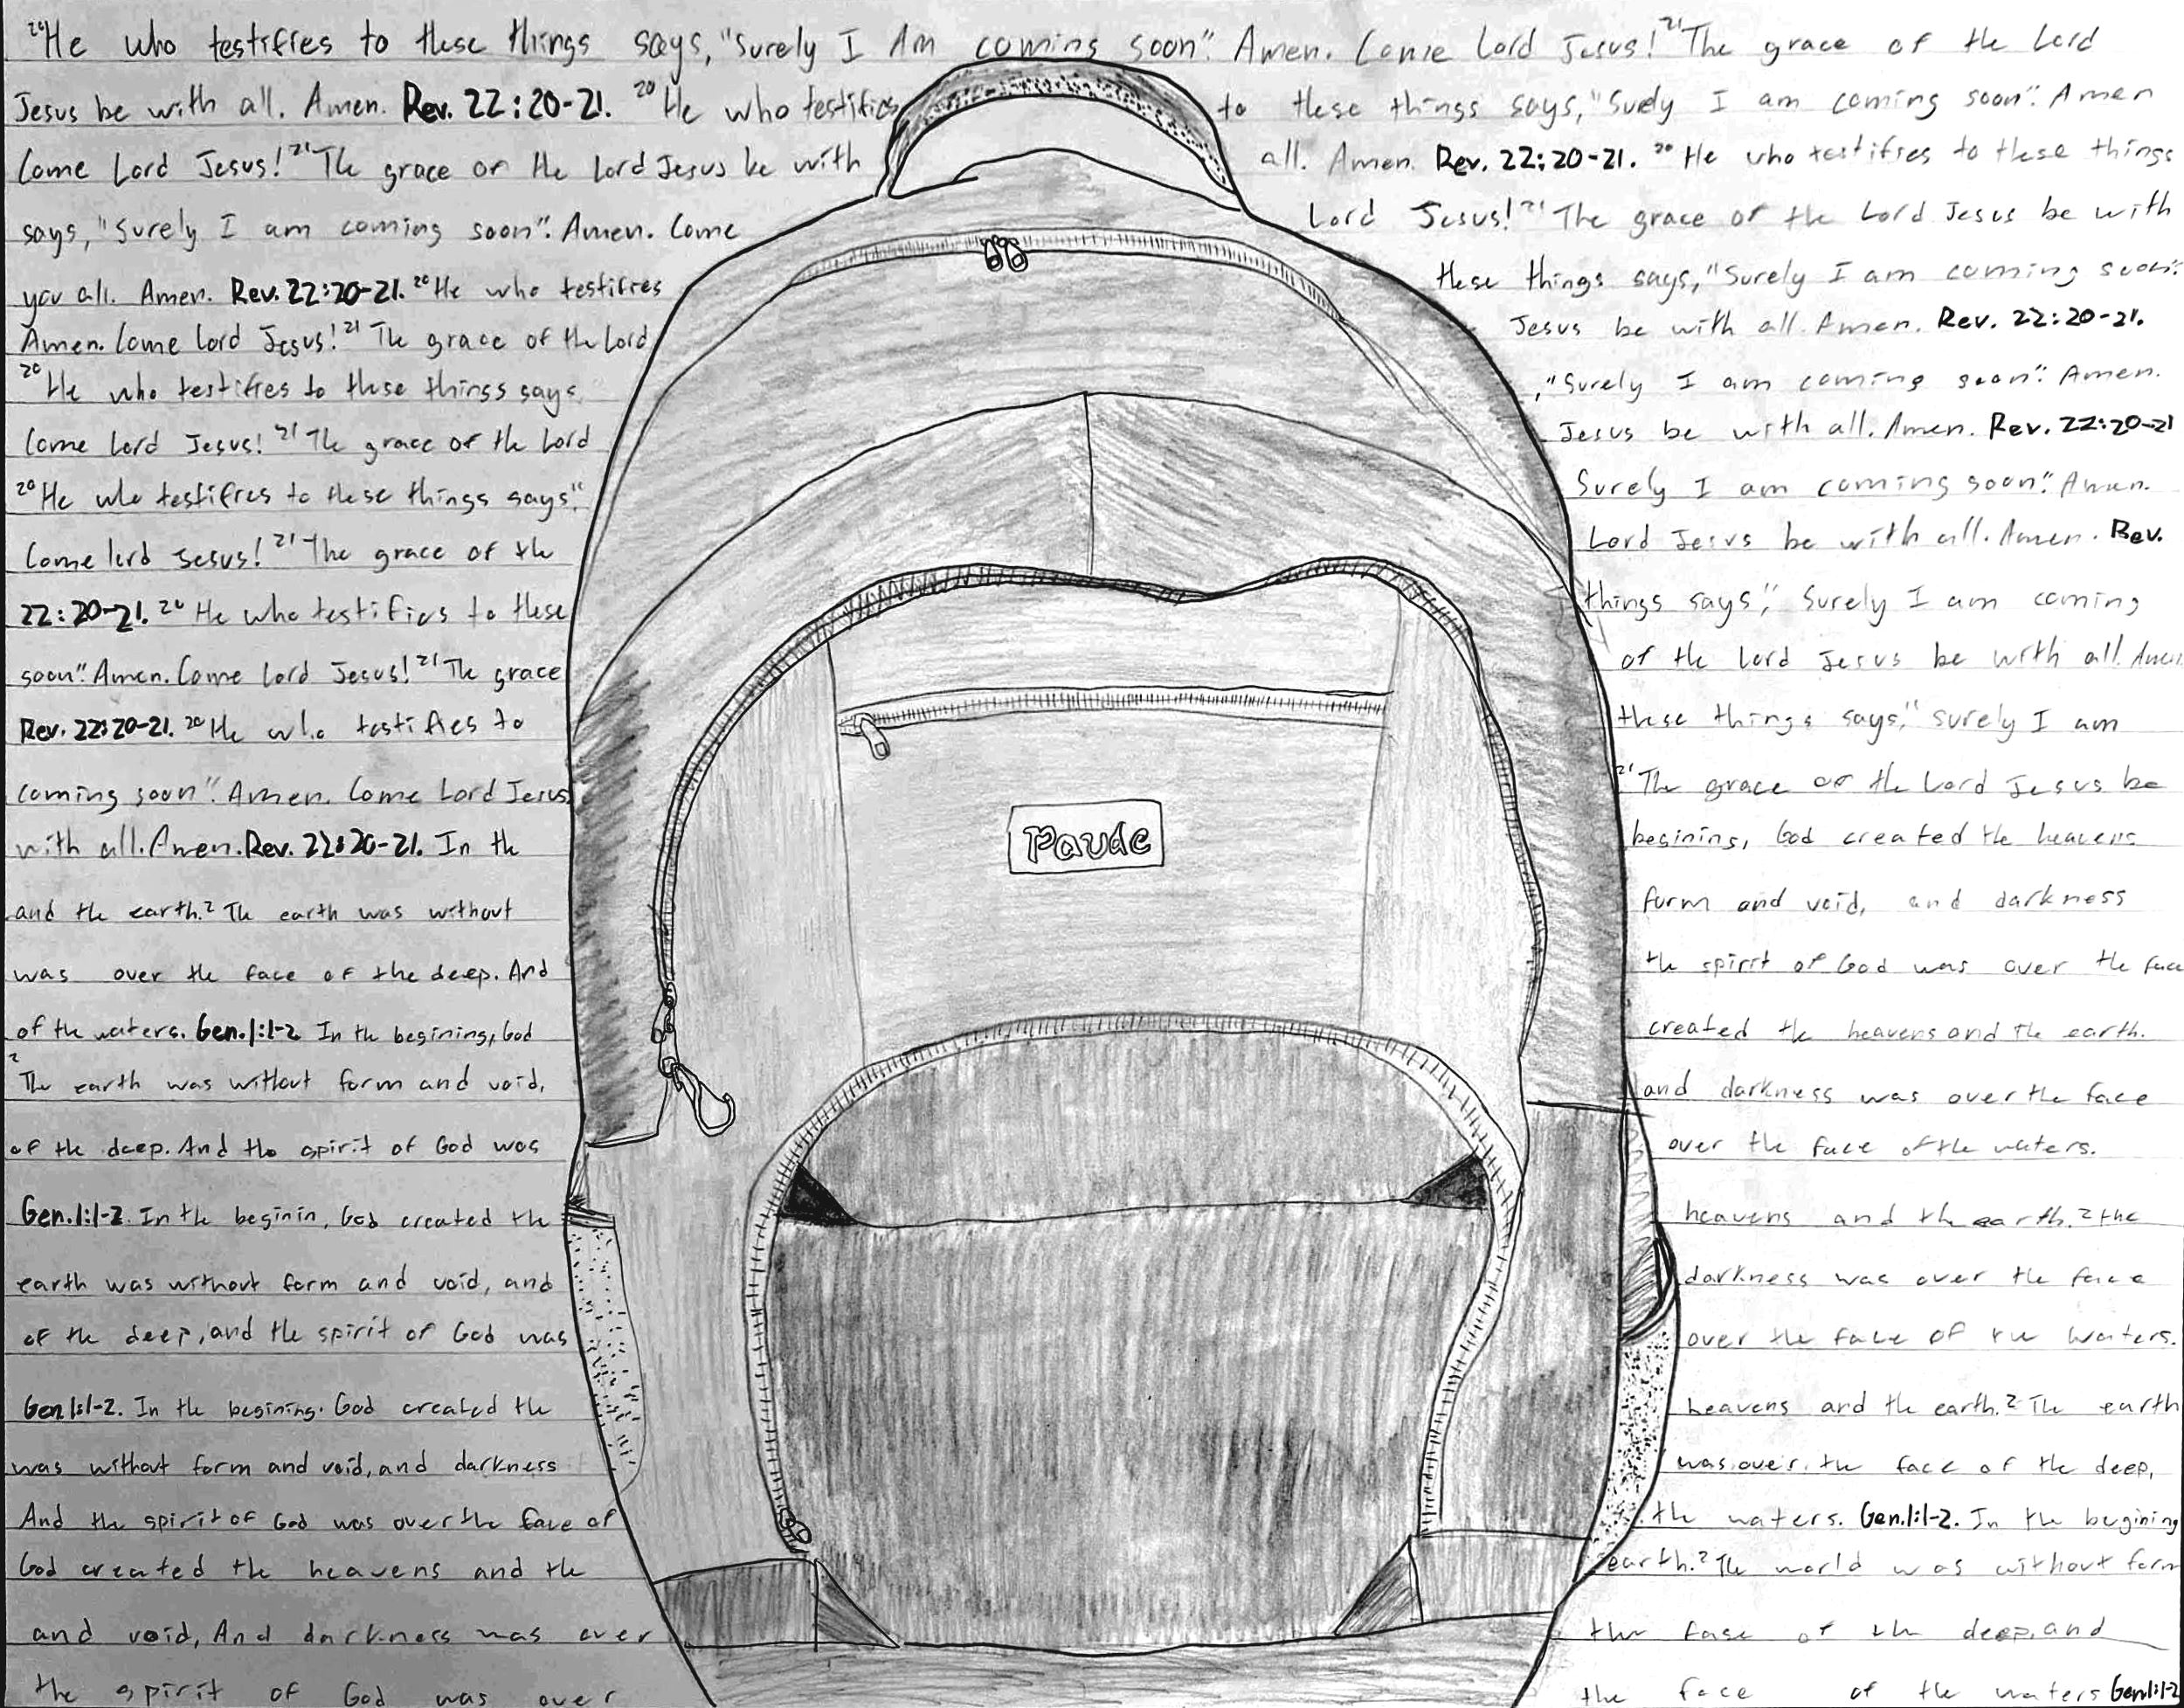 20 He who testifies to these things says, "Surely I Am coming soon". Amen. Come Lord Jesus! 21 The grace of the Lord
Jesus be with all. Amen. Rev. 22:20-21. 20 He who testifies to these things says, "Surely I am coming soon". Amen
Come Lord Jesus! 21 The grace of the Lord Jesus be with all. Amen. Rev. 22:20-21. 20 He who testifies to these things
says, "Surely I am coming soon". Amen. Come Lord Jesus! 21 The grace of the Lord Jesus be with
you all. Amen. Rev. 22:20-21. 20 He who testifies these things says, "Surely I am coming soon".
Amen. Come Lord Jesus! 21 The grace of the Lord Jesus be with all. Amen. Rev. 22:20-21.
20 He who testifies to these things says, "Surely I am coming soon". Amen.
Come Lord Jesus! 21 The grace of the Lord Jesus be with all. Amen. Rev. 22:20-21
20 He who testifies to these things says" Surely I am coming soon". Amen.
Come Lord Jesus! 21 The grace of the Lord Jesus be with all. Amen. Rev.
22:20-21. 20 He who testifies to these things says", Surely I am coming
soon". Amen. Come Lord Jesus! 21 The grace of the Lord Jesus be with all. Amen
Rev. 22:20-21. 20 He who testifies to these things says," Surely I am
coming soon". Amen. Come Lord Jesus 21 The grace of the Lord Jesus be
with all. Amen. Rev. 22:20-21. In the begining, God created the heavens
Paude
and the earth. 2 The earth was without form and void, and darkness
was over the face of the deep. And the spirit of God was over the face
of the waters. Gen. 1:1-2 In the begining, God created the heavens and the earth.
2 The earth was without form and void, and darkness was over the face
of the deep. And the spirit of God was over the face of the waters.
Gen. 1:1-2. In the beginin, God created the heavens and the earth. 2 the
earth was without form and void, and darkness was over the face
of the deep, and the spirit of God was over the face of the waters.
Gen 1:1-2. In the begining. God created the heavens and the earth. 2 The earth
was without form and void, and darkness was over the face of the deep,
And the spirit of God was over the face of the waters. Gen. 1:1-2. In the begining
God created the heavens and the earth. 2 The world was without form
and void, And darkness was over the fase of the deep, and
the spirit of God was over the face of the waters Gen 1:1-2